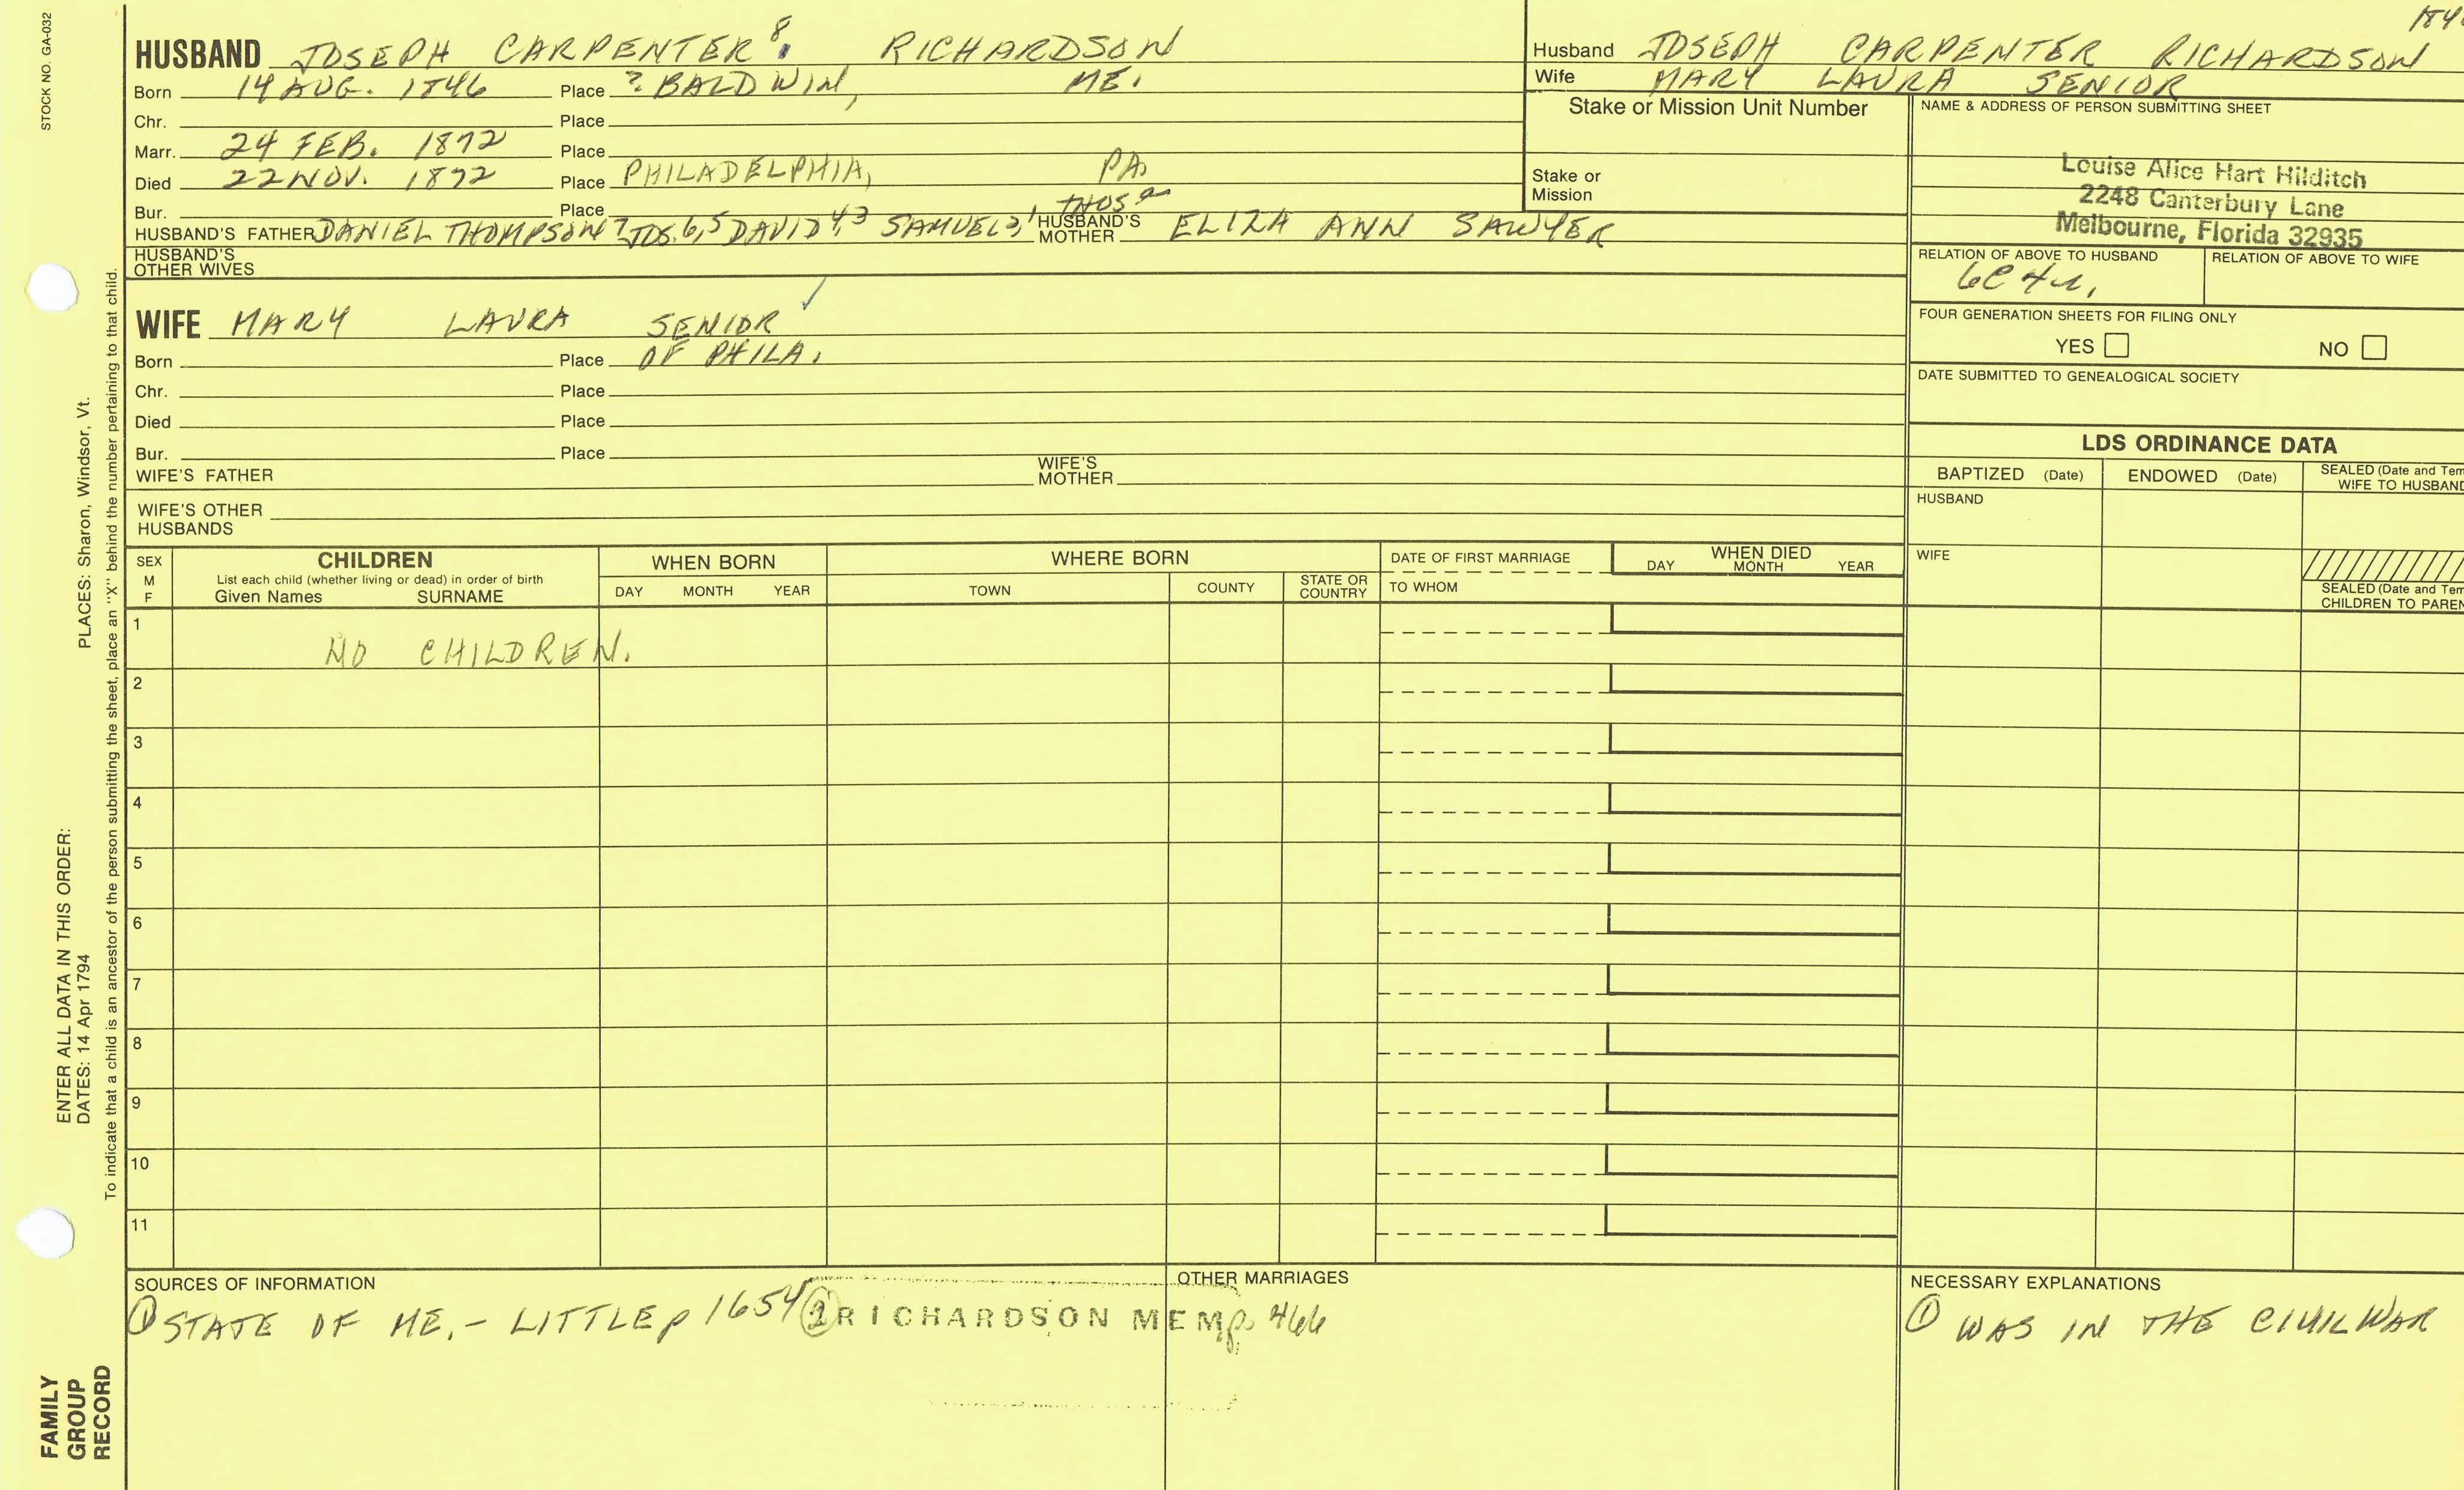 STOCK NO. GA-032
184
HUSBAND JOSEPH CARPENTER 8. RICHARDSON
Born 14 AUG. 1846 Place ? BALDWIN, ME.
Chr. Place
Marr. 24 FEB. 1872 Place
Died 22 NOV. 1872 Place PHILADELPHIA, PA
Bur. Place
HUSBAND'S FATHER DANIEL THOMPSON 7, JOS. 6,5 DAVID 4,3 SAMUEL 2,1 THOS HUSBAND'S MOTHER ELIZA ANN SAWYER
HUSBAND'S OTHER WIVES
WIFE MARY LAURA SENIOR ✓
Born Place OF PHILA.
Chr. Place
Died Place
Bur. Place
WIFE'S FATHER WIFE'S MOTHER
WIFE'S OTHER HUSBANDS
Husband JOSEPH CARPENTER RICHARDSON
Wife MARY LAURA SENIOR
Stake or Mission Unit Number
Stake or Mission
NAME & ADDRESS OF PERSON SUBMITTING SHEET
Louise Alice Hart Hilditch
2248 Canterbury Lane
Melbourne, Florida 32935
RELATION OF ABOVE TO HUSBAND RELATION OF ABOVE TO WIFE
6C 4
FOUR GENERATION SHEETS FOR FILING ONLY
YES NO
DATE SUBMITTED TO GENEALOGICAL SOCIETY
LDS ORDINANCE DATA
BAPTIZED (Date) ENDOWED (Date) SEALED (Date and Tem
WIFE TO HUSBAND
HUSBAND
WIFE
SEALED (Date and Tem
CHILDREN TO PAREN
SEX M F
CHILDREN
List each child (whether living or dead) in order of birth
Given Names SURNAME
WHEN BORN
DAY MONTH YEAR
WHERE BORN
TOWN COUNTY STATE OR COUNTRY
DATE OF FIRST MARRIAGE
TO WHOM
WHEN DIED
DAY MONTH YEAR
1 NO CHILDREN.
2
3
4
5
6
7
8
9
10
11
SOURCES OF INFORMATION
① STATE OF ME. - LITTLE p 1654 ② RICHARDSON MEM p. 466
OTHER MARRIAGES
NECESSARY EXPLANATIONS
① WAS IN THE CIVIL WAR
ENTER ALL DATA IN THIS ORDER:
DATES: 14 Apr 1794 PLACES: Sharon, Windsor, Vt.
To indicate that a child is an ancestor of the person submitting the sheet, place an "X" behind the number pertaining to that child.
FAMILY
GROUP
RECORD